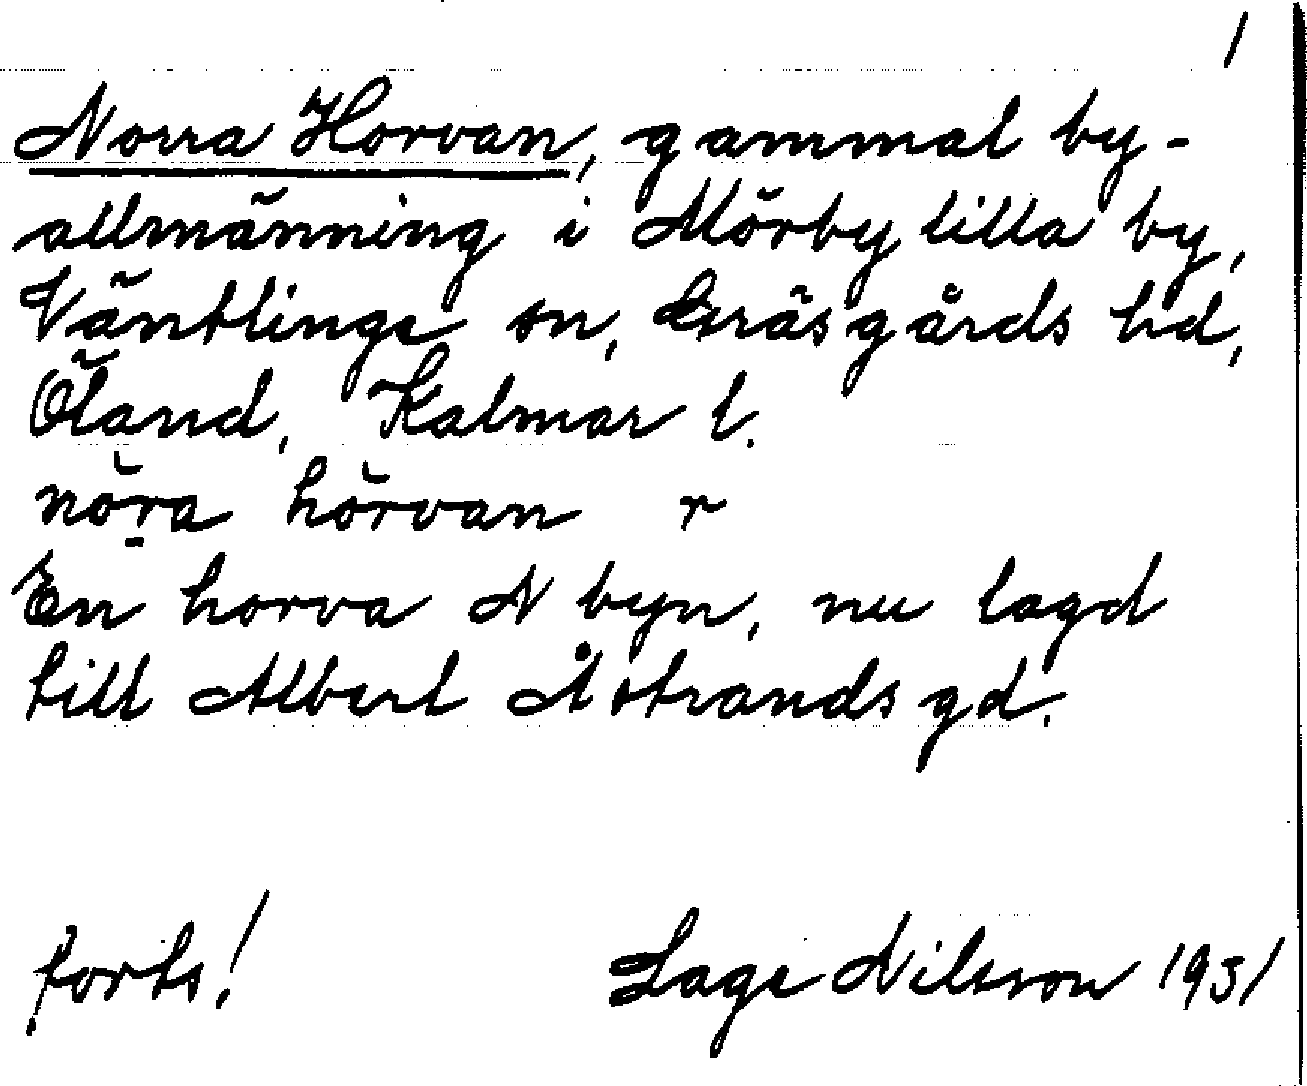 1
Norra Horvan, gammal by-
allmänning i Mörby lilla by,
Ventlinge sn, Gräsgårds hd,
Öland, Kalmar l.
nŏ̈ra hŏ̈rvan r
En horva N byn, nu lagd
till Albert Åstrands gd.
forts! Lage Nilsson 1931